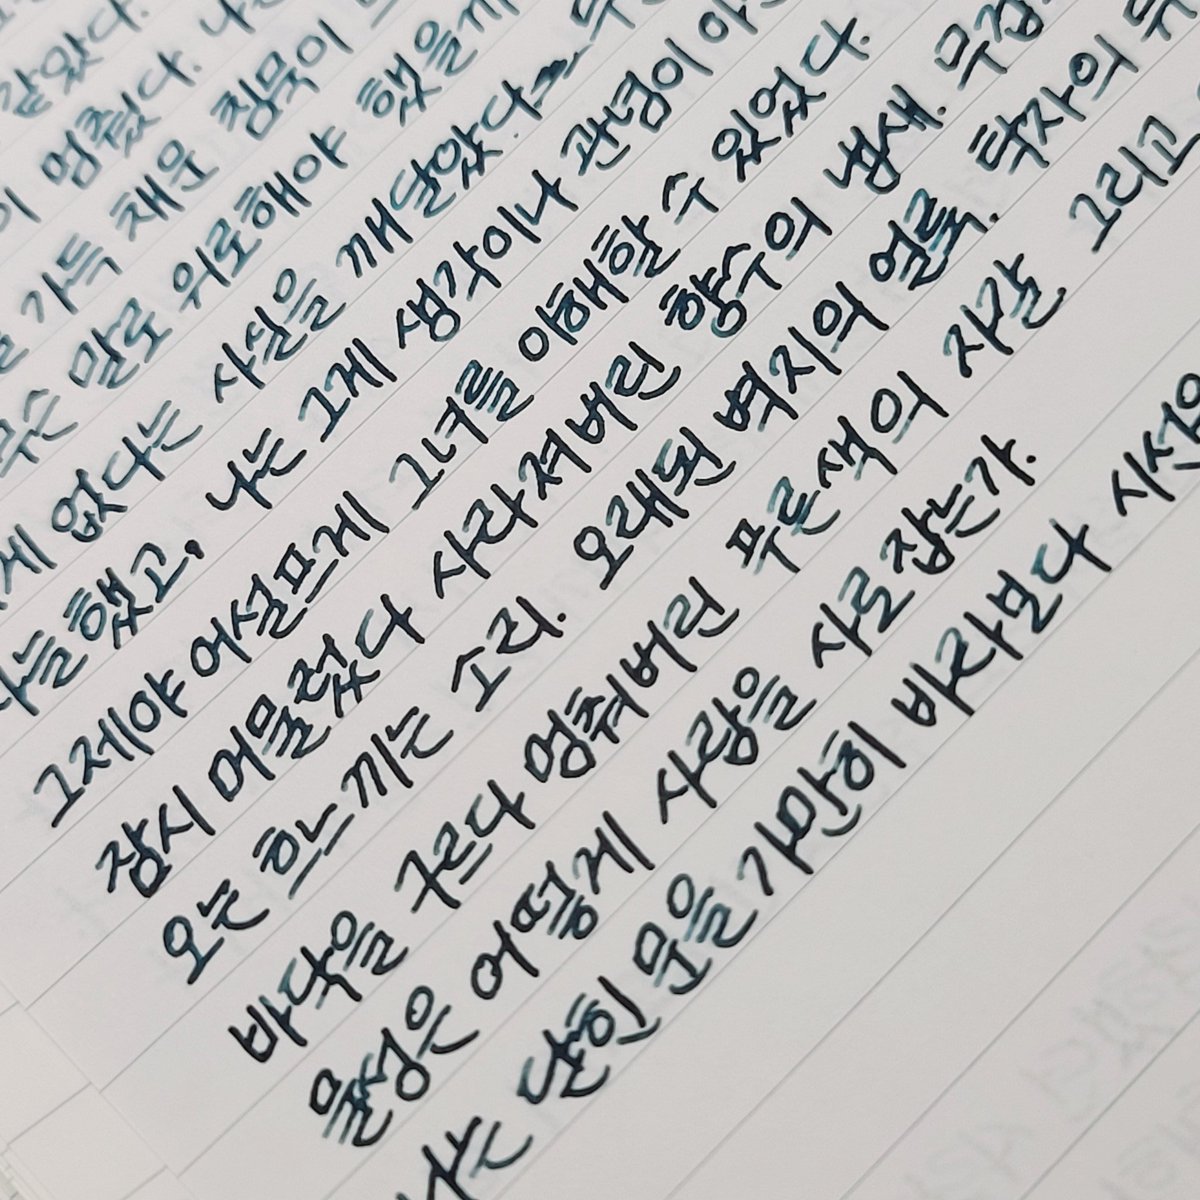 같았다.
이 멈췄다. 나
가득 채운 침묵이
무슨 말로 위로해야 했을까
게 없다는 사실을 깨달았다. 두
나는 했고, 나는 그게 생각이나 관념이 아
그제야 어설프게 그녀를 이해할 수 있었다.
잠시 머물렀다 사라져버린 향수의 냄새. 무겁
오는 흐느끼는 소리. 오래된 벽지의 얼룩. 탁자의 무
바닥을 구르다 멈춰버린 푸른색의 자갈. 그리고
물성은 어떻게 사람을 사로잡는가.
나는 닫힌 문을 가만히 바라보다 시선을